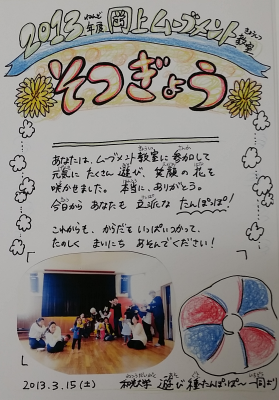 2013年度 ねんど
岡上ムーブメント教室 きょうしつ
そつぎょう
あなたは、ムーブメント教室に参加して
元気にたくさん遊び、笑顔の花を
咲かせました。本当に、ありがとう。
今日からあなたも立派なたんぽっぽ!
これからも、からだをいっぱいつかって、
たのしくまいにちあそんでください!
2013.3.15(土)
和光大学 遊び種たんぽぽ〜一同より